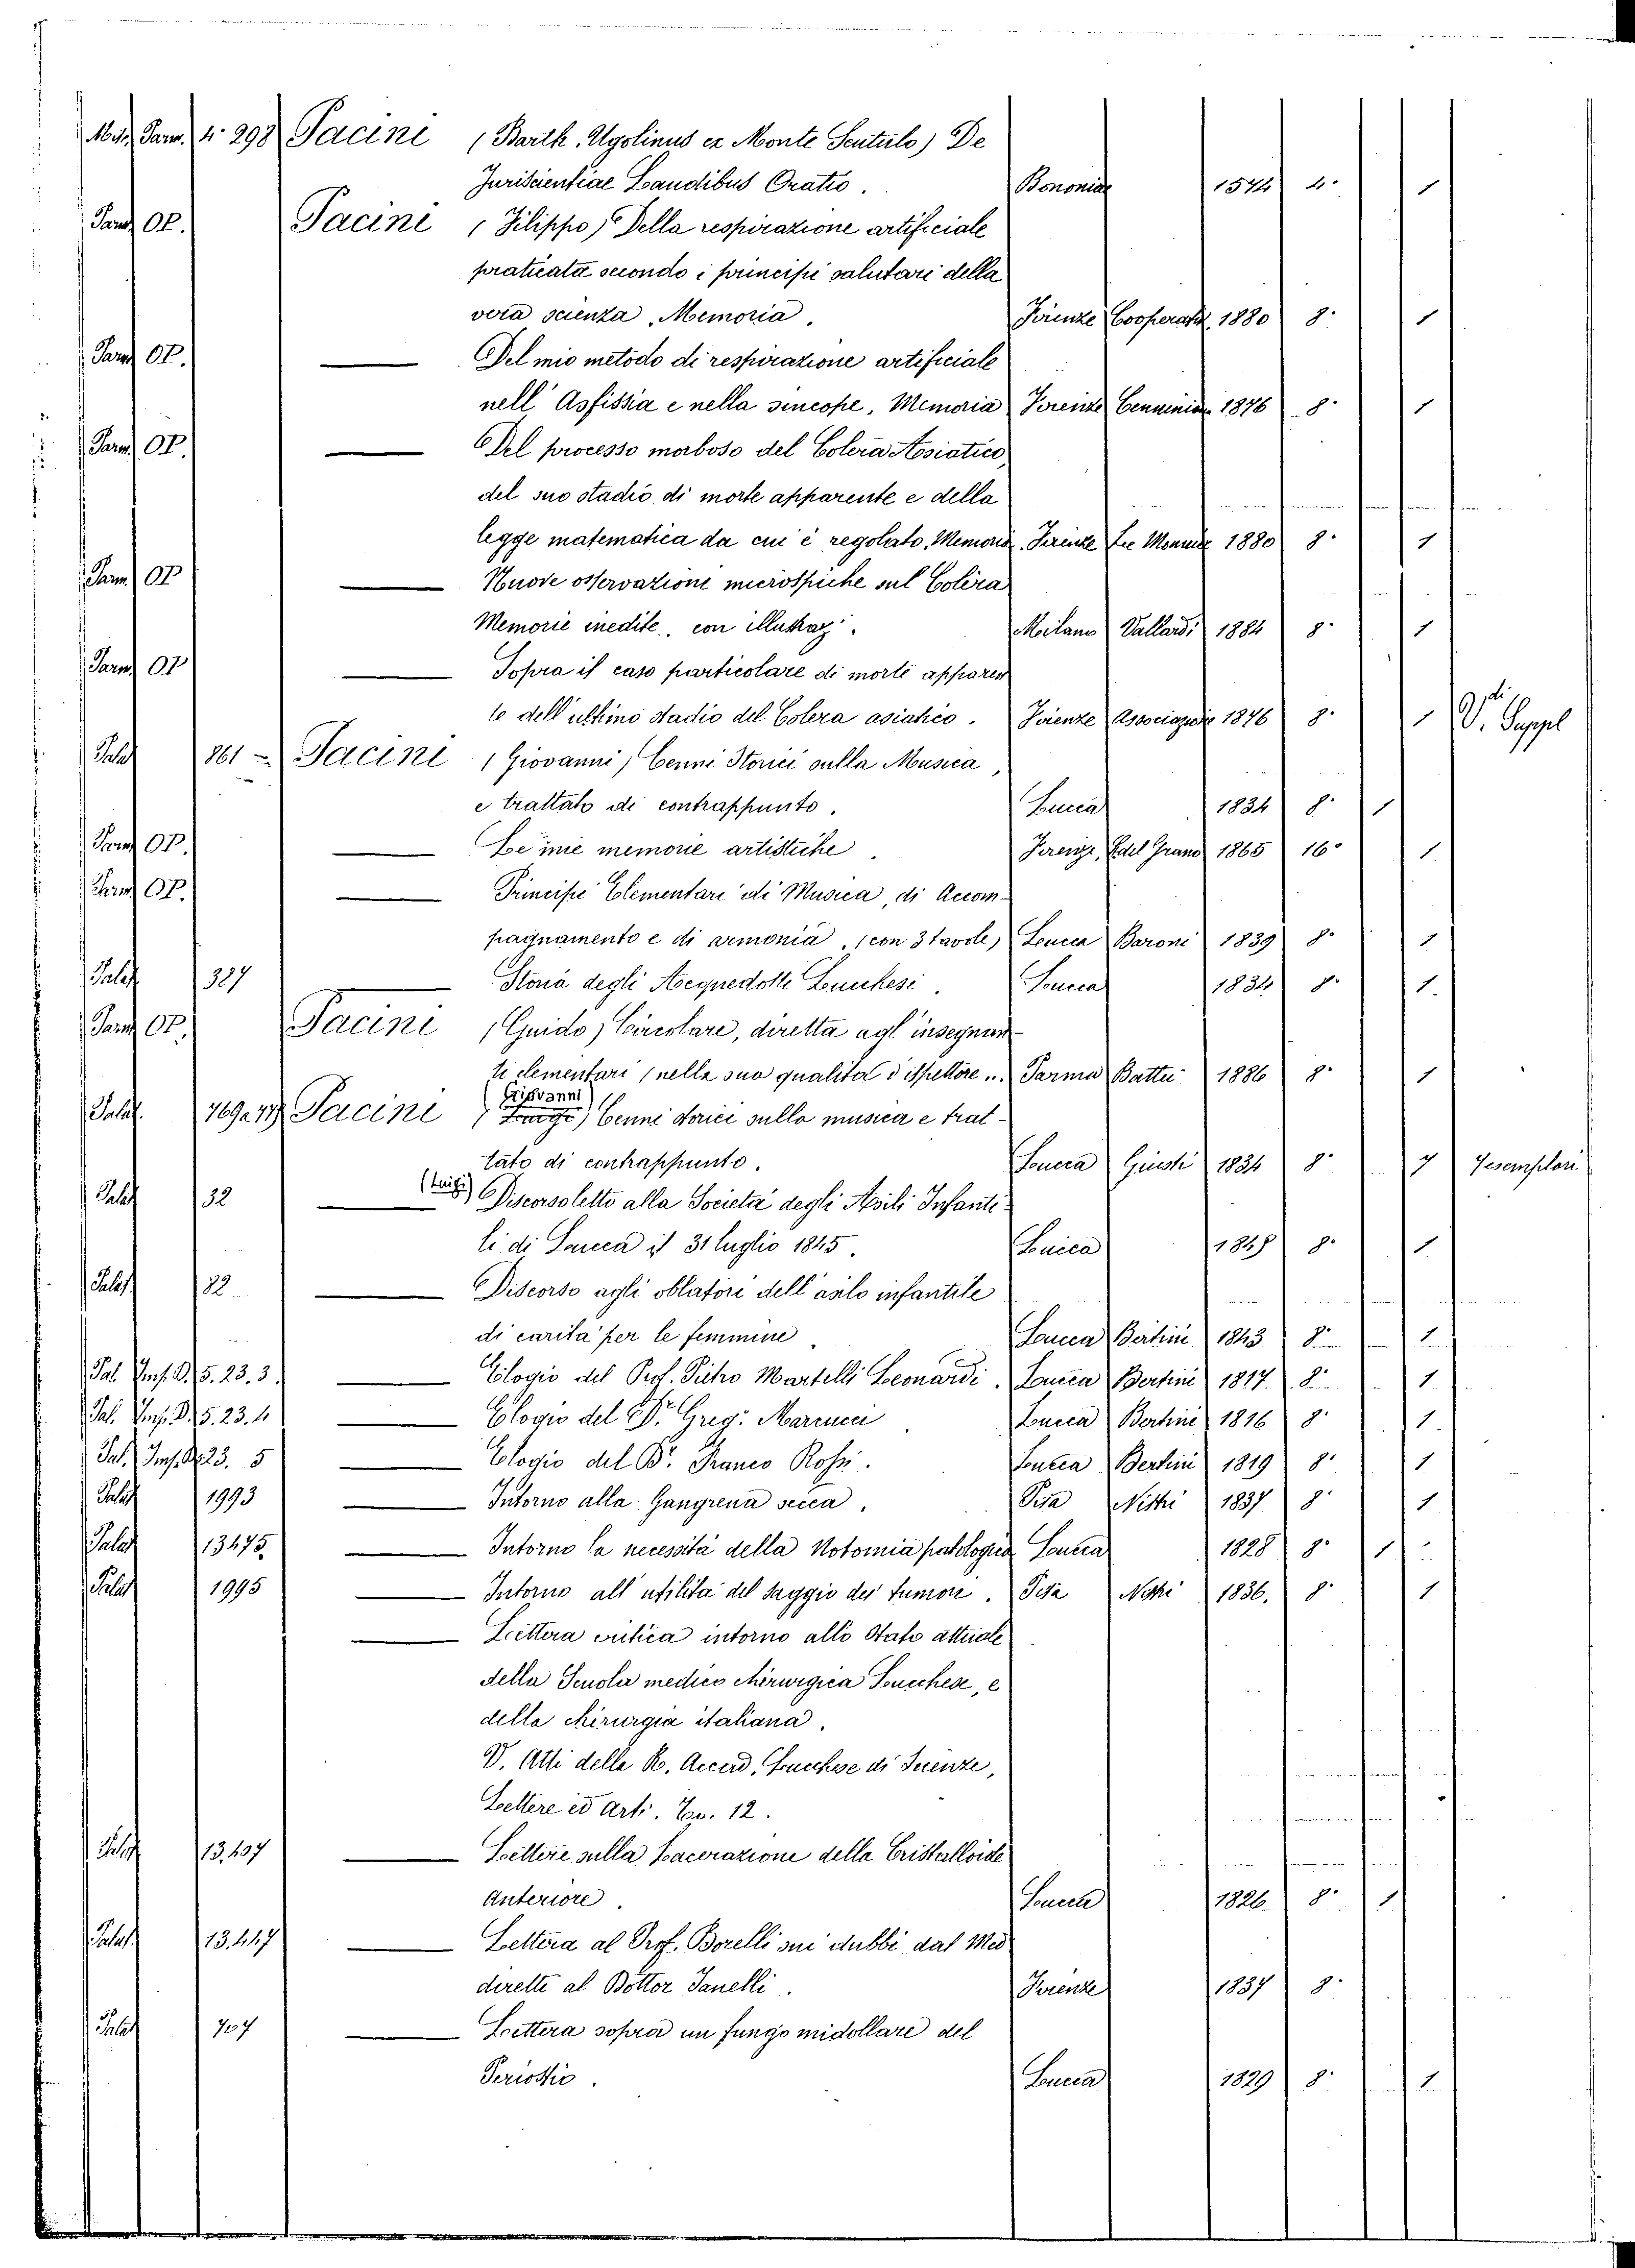 Parm. 4. 298 Pacini (Barth. Ugolinus ex Monte Scutulo) De
Juriscientiae Laudibus Oratio. Bononiae 1544 4. 1
Parm OP. Pacini (Filippo) Della respirazione artificiale
praticata secondo i principi salutari della
vera scienza. Memoria. Firenze Cooperat. 1880 8. 1
Parm OP. Del mio metodo di respirazione artificiale
nell' Asfissia e nella sincope. Memoria Firenze Cenniniana 1876 8. 1
Parm OP. Del processo morboso del Colera Asiatico,
del suo stadio di morte apparente e della
legge matematica da cui è regolato, Memoria. Firenze Le Monnier 1880 8. 1
Parm OP Nuove osservazioni microspiche sul Colèra
Memorie inedite, con illustraz. Milano Vallardi 1884 8. 1
Parm OP Sopra il caso particolare di morte apparen
te dell'ultimo stadio del Colera asiatico. Firenze Associazione 1876 8. 1 Vdi. Suppl
Palat 861 Pacini (Giovanni) Cenni Storici sulla Musica,
e trattato di contrappunto. Lucca 1834 8. 1
Parm OP. Le mie memorie artistiche. Firenze, Edel Grand 1865 16° 1
Parm OP. Principi Elementari di Musica, di Accom-
pagnamento e di armonia, (con 3 tavole) Lucca Baroni 1839 8. 1
Palat 327 Storia degli Acquedotti Lucchesi. Lucca 1834 8. 1.
Parm OP. Pacini (Guido) Circolare, diretta agl'insegnan
ti elementari (nella sua qualità d'ispettore... Parma Battei. 1886 8. 1
(Giovanni)
Palat. Pacini (Luigi) Cenni storici sulla musica e trat-
tato di contrappunto. Lucca Giusti 1834 8. 7 7 esemplari
Palat 32 (Luigi) Discorso letto alla Società degli Asili Infanti-
li di Lucca il 31 luglio 1845. Lucca 8. 1
Palat. 32 Discorso agli oblatori dell'asilo infantile
di carità per le femmine. Lucca Bertini 1843 8. 1
Pal. Imp. D. 5. 23. 3. Elogio del Prof. Pietro Martelli Leonardi. Lucca Bertini 1817 8. 1.
Pal. Imp. D. 5. 23. 4 Elogio del Dr. Greg. Lucca Bertini 1816 8. 1
Pal. Imp. 23. 5 Elogio del Dr. Franco Rossi. Lucca Bertini 1819 8. 1.
Palat 1993 Intorno alla Gangrena secca. Pisa Nistri 1837 8. 1
Palat 13475 Intorno la necessità della Notomia patologica Lucca 1828 8. 1
Palat 1995 Intorno all'utilità del saggio dei tumori. Pisa Nistri 1836. 8. 1
Lettera critica intorno allo Stato attuale
della Scuola medico chirurgica Lucchese, e
della chirurgia italiana.
V. Atti della R. Accad. Lucchese di Scienze,
Lettere ed Arti. To. 12.
Palat 13,497 Lettere sulla Lacerazione della Cristalloide
Anteriore. Lucca 1826. 8. 1
Palat. 13,447 Lettera al Prof. Borelli sui dubbi dal Med
dirette al Dottor Vanelli. Firenze 1837 8.
Palat 707 Lettera sopra un fungo midollare del
Periostio. Lucca 1829 8. 1